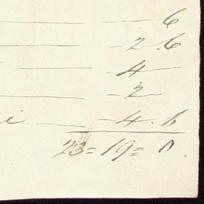 — 6
— 2 . 6
— 4 —
— 2 —
— 4 . 6
23 = 19 = 0